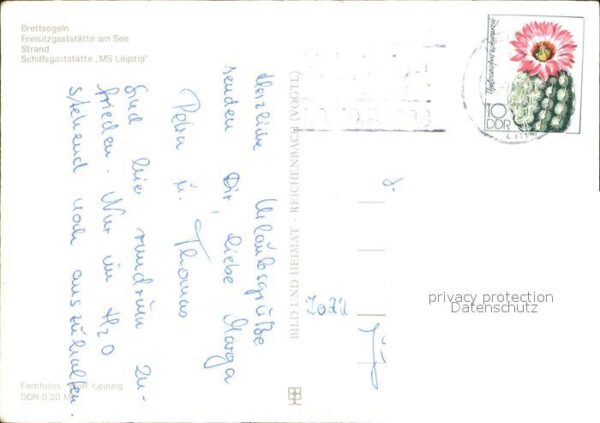 Brettsegeln
Freisitzgaststätte am See
Strand
Schiffsgaststätte „MS Leipzig"
Herzliche Urlaubsgrüße
senden Dir, liebe Marga
Petra u. Thomas
Sind hier rundrum zu-
frieden. Nur im H2O
stehend noch auszuhalten.
BILD UND HEIMAT · REICHENBACH (VOGTL)
10
DDR
7022
privacy protection
Datenschutz
Farbfotos: Leipzig
DDR 0,20 M